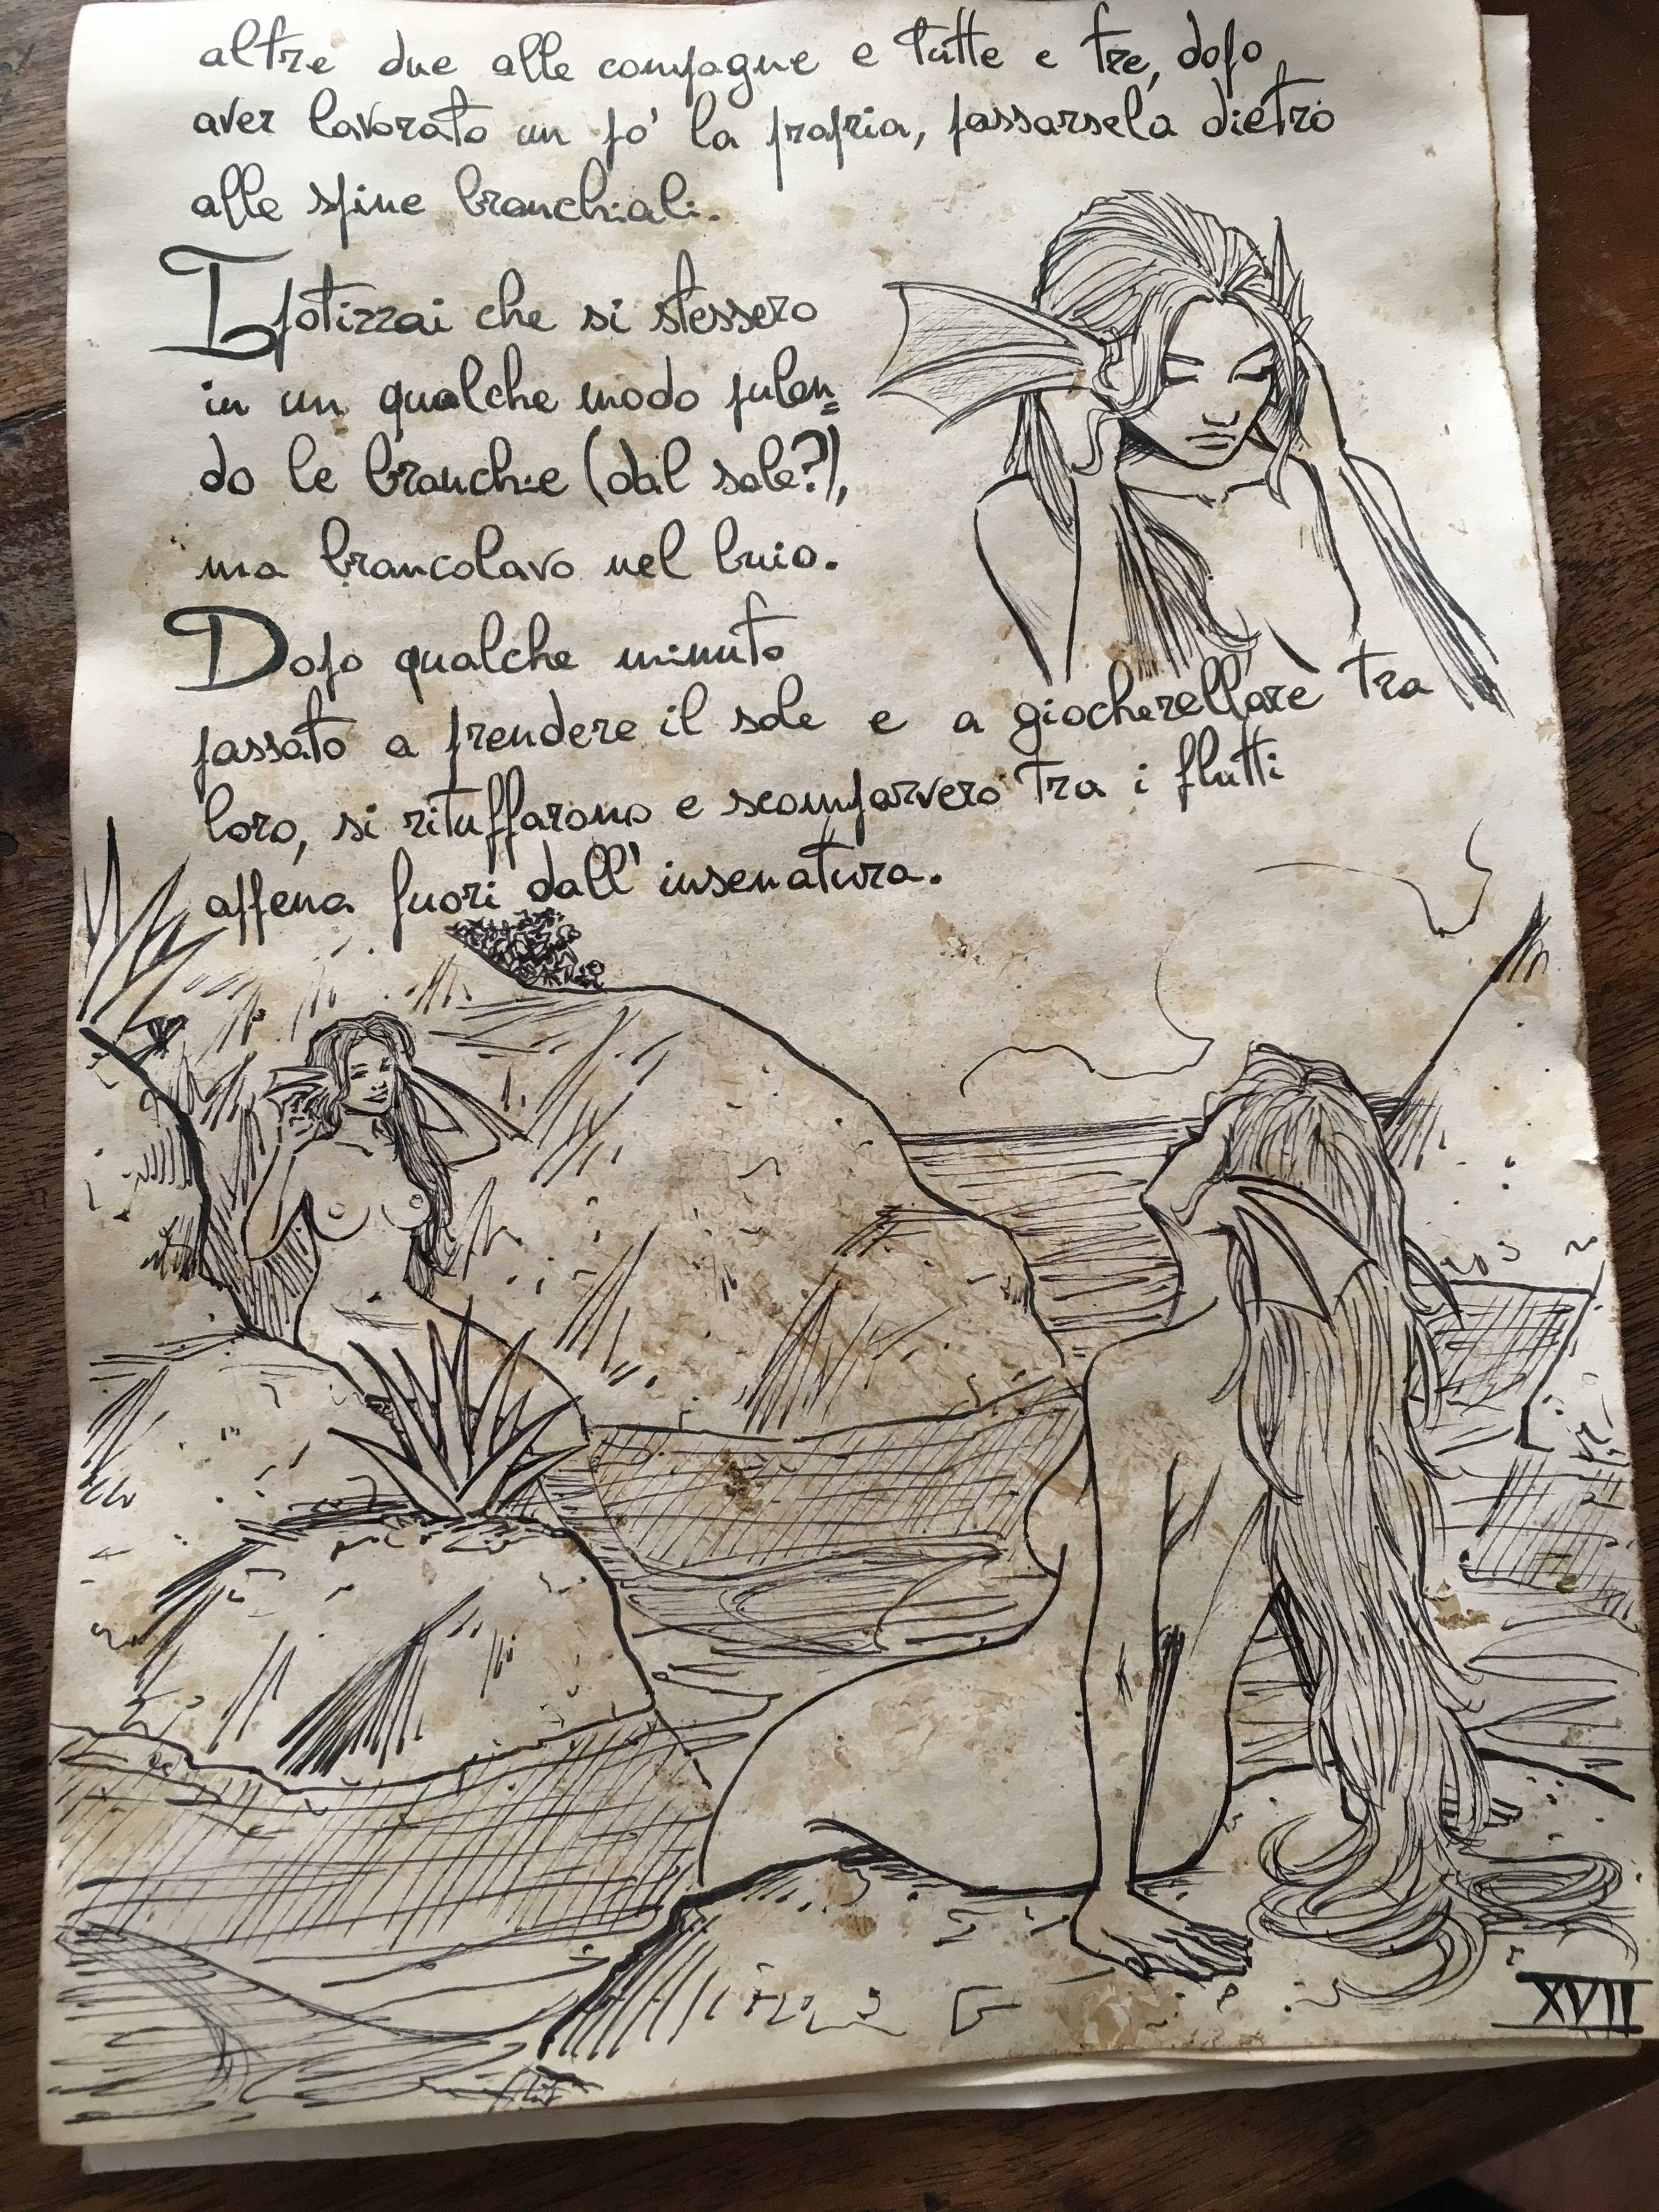 altre due alle compagne e tutte e tre, dopo
aver lavorato un po' la propria, passarsela dietro
alle spine branchiali.
Ipotizzai che si stessero
in un qualche modo pulen=
do le branchie (dal sale?),
ma brancolavo nel buio.
Dopo qualche minuto
passato a prendere il sole e a giocherellare tra
loro, si rituffarono e scomparvero tra i flutti
appena fuori dall'insenatura.
XVII